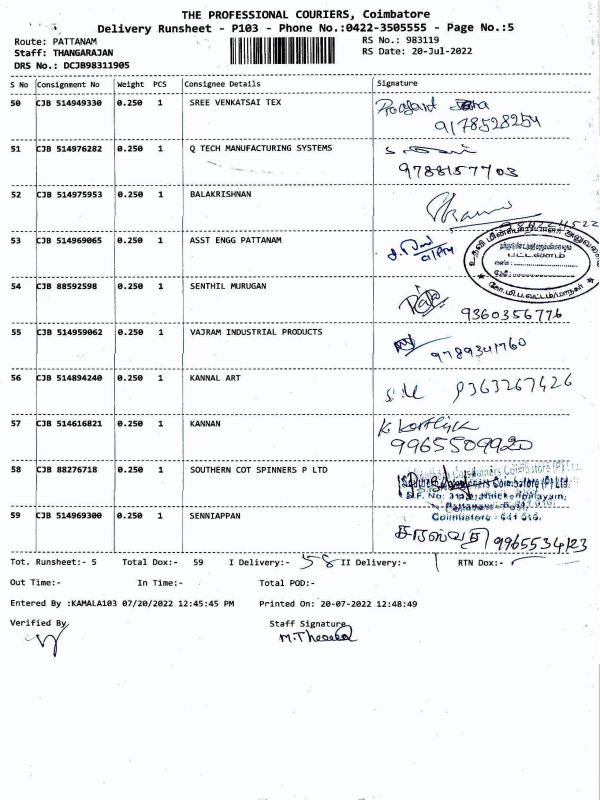 THE PROFESSIONAL COURIERS, Coimbatore
Delivery Runsheet - P103 - Phone No.:0422-3505555 - Page No.:5
Route: PATTANAM RS No.: 983119
Staff: THANGARAJAN RS Date: 20-Jul-2022
DRS No.: DCJB98311905
S No Consignment No Weight PCS Consignee Details Signature
50 CJB 514949330 0.250 1 SREE VENKATSAI TEX
9178528254
51 CJB 514976282 0.250 1 Q TECH MANUFACTURING SYSTEMS
9788157703
52 CJB 514975953 0.250 1 BALAKRISHNAN
53 CJB 514969065 0.250 1 ASST ENGG PATTANAM
பட்டணம்
54 CJB 88592598 0.250 1 SENTHIL MURUGAN
9360356776
55 CJB 514959062 0.250 1 VAJRAM INDUSTRIAL PRODUCTS
9789341760
56 CJB 514894240 0.250 1 KANNAL ART
9363267426
57 CJB 514616821 0.250 1 KANNAN
K. Karthick
9965509920
58 CJB 88276718 0.250 1 SOUTHERN COT SPINNERS P LTD
Coimbatore - 641 016.
59 CJB 514969300 0.250 1 SENNIAPPAN
சரஸ்வதி 9965534123
Tot. Runsheet:- 5 Total Dox:- 59 I Delivery:- 58 II Delivery:- RTN Dox:-
Out Time:- In Time:- Total POD:-
Entered By :KAMALA103 07/20/2022 12:45:45 PM Printed On: 20-07-2022 12:48:49
Verified By Staff Signature